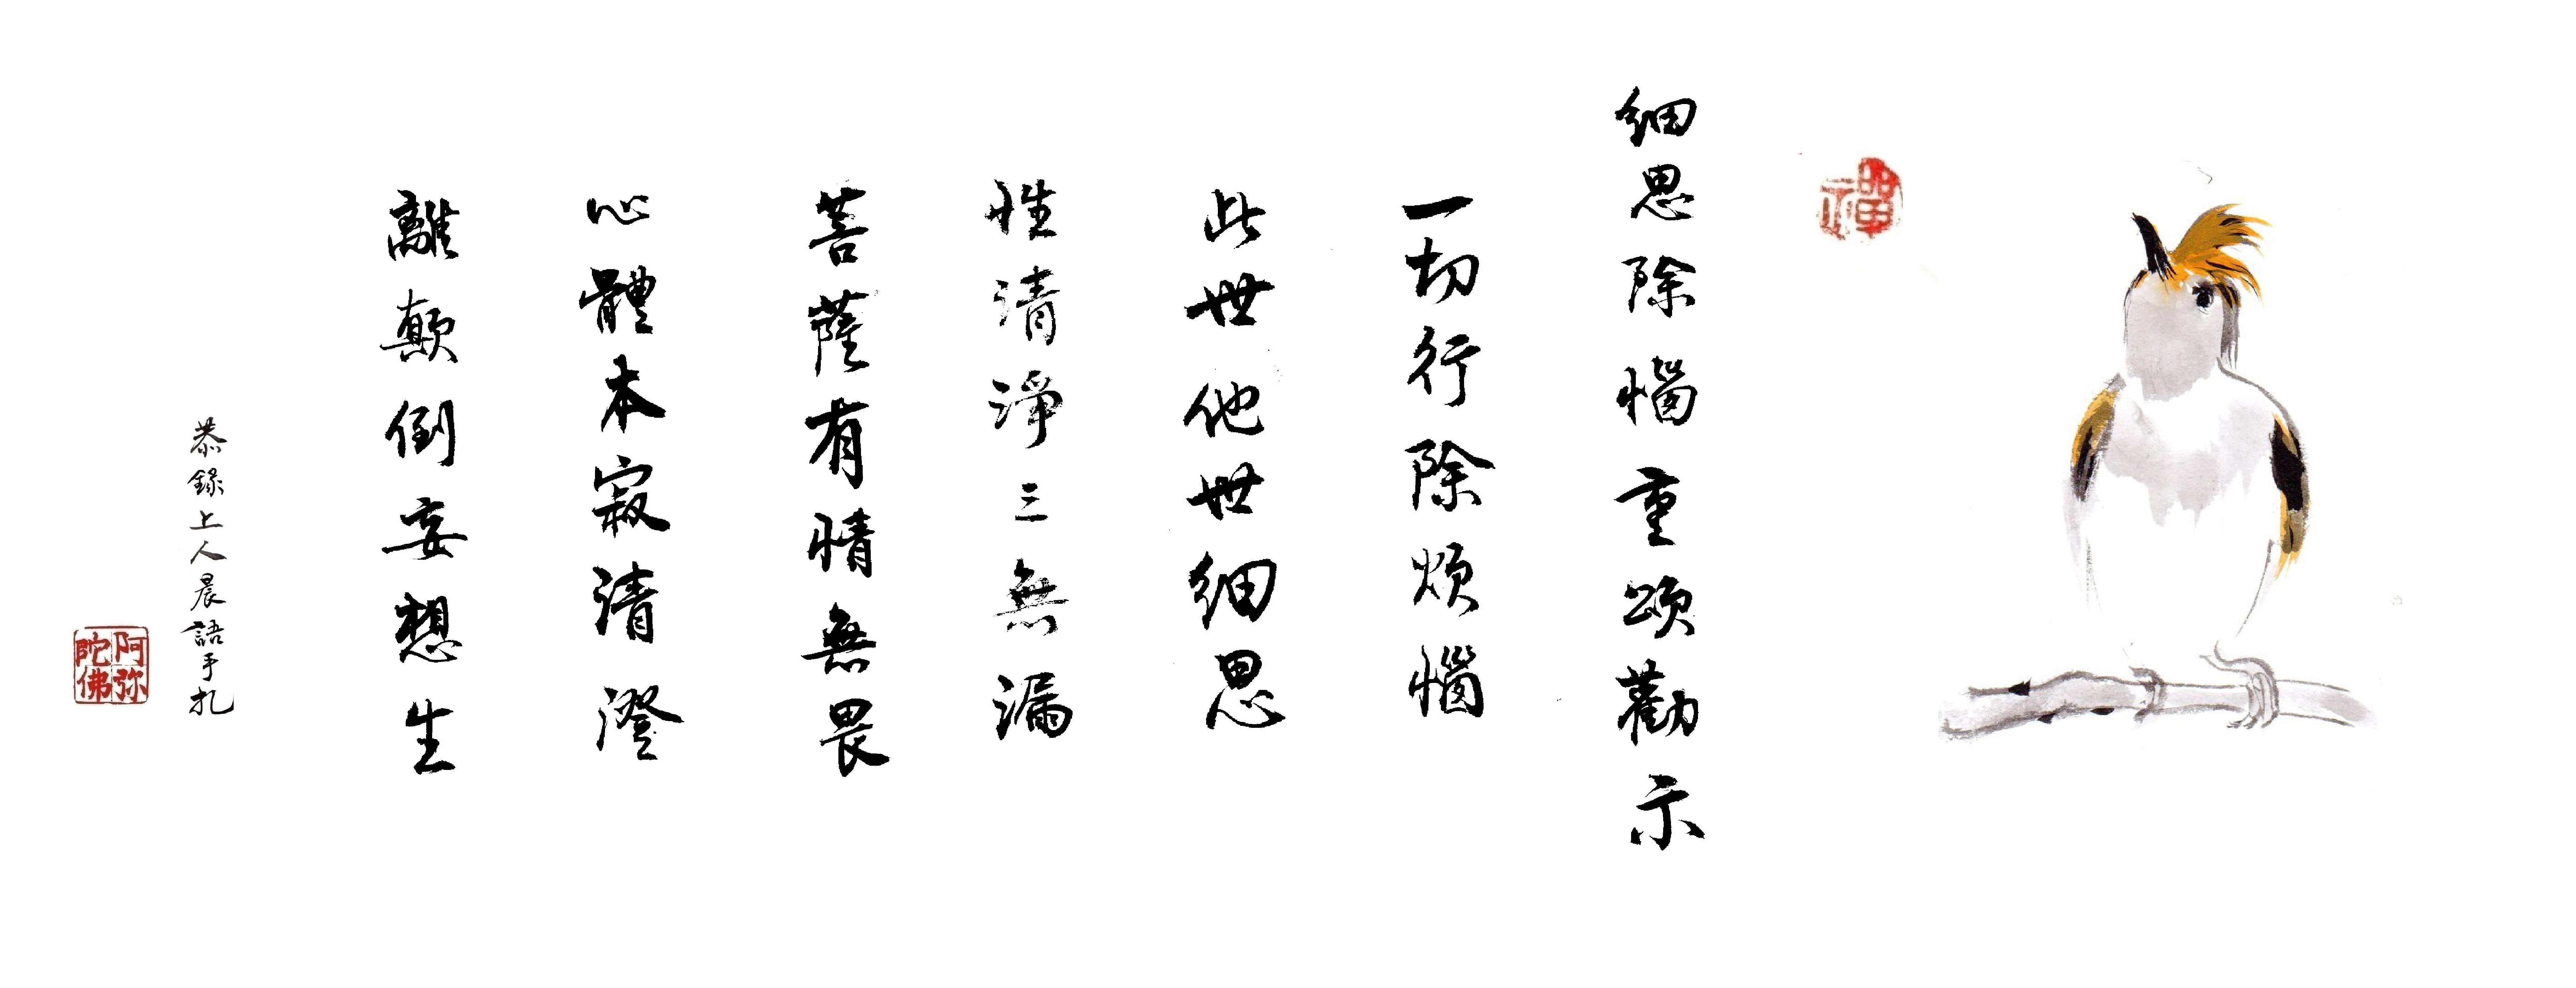 禪
細思除惱重頌勸示
一切行除煩惱
此世他世細思
性清淨三無漏
菩薩有情無畏
心體本寂清澄
離顛倒妄想生
恭錄上人晨語手扎
阿弥陀佛